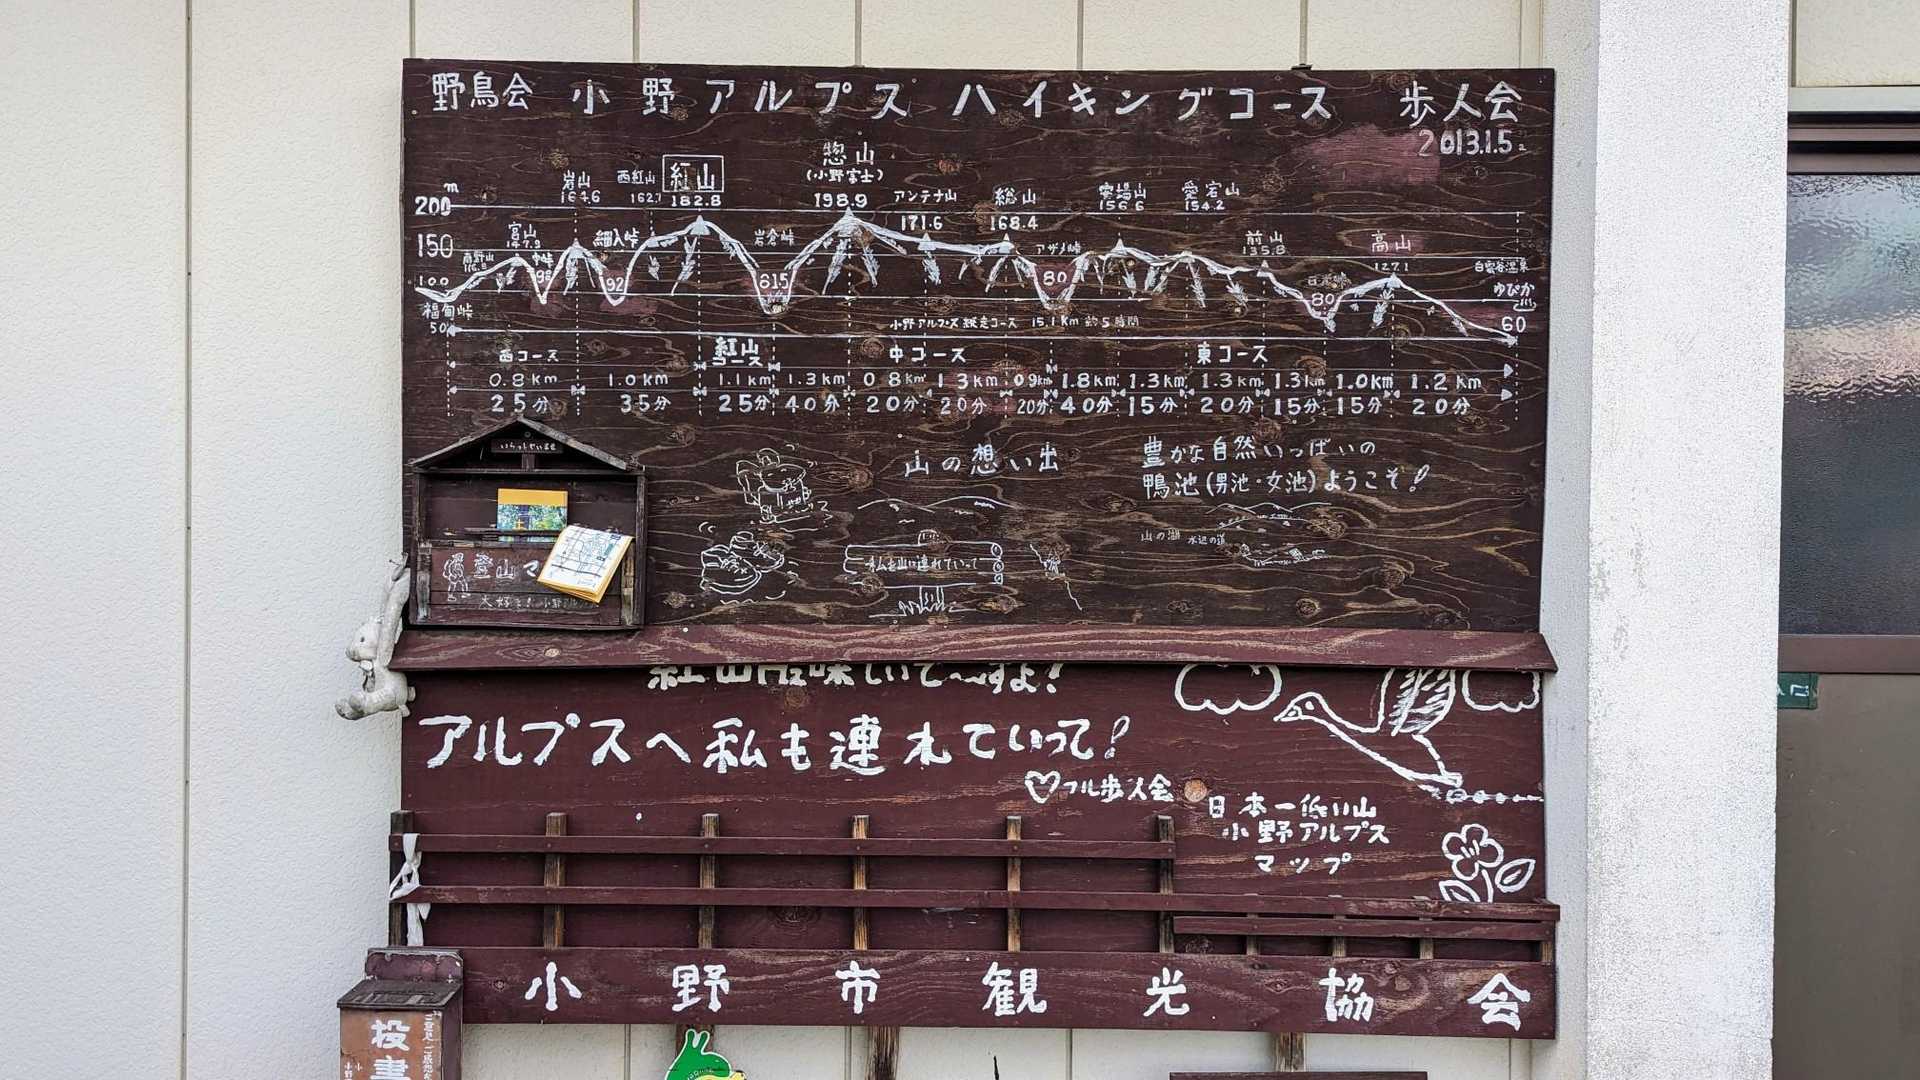 野鳥会 小野アルプス ハイキングコース 歩人会
2013.1.5
惣山
(小野富士)
198.9
紅山
182.8
岩山
164.6
西紅山
162.7
アンテナ山
171.6
総山
168.4
156.6
愛宕山
154.2
m
200
150
100
50
宮山
147.9
細入峠
岩倉峠
アザメ峠
前山
135.8
高山
127.1
白雲谷温泉
ゆぴか
60
98
92
61.5
80
80
福甸峠
小野アルプス縦走コース 15.1Km 約5時間
西コース 紅山コース 中コース 東コース
0.8km 1.0km 1.1km 1.3km 0.8km 1.3km 0.9km 1.8km 1.3km 1.3km 1.3km 1.0km 1.2km
25分 35分 25分 40分 20分 20分 20分 40分 15分 20分 15分 15分 20分
いらっしゃいませ
山の想い出
豊かな自然いっぱいの
鴨池(男池・女池)ようこそ!
山の湖 水辺の道
私も山に連れていって
登山マ
大好き!
アルプスへ私も連れていって!
フル歩人会
日本一低い山
小野アルプス
マップ
小野市観光協会
投書